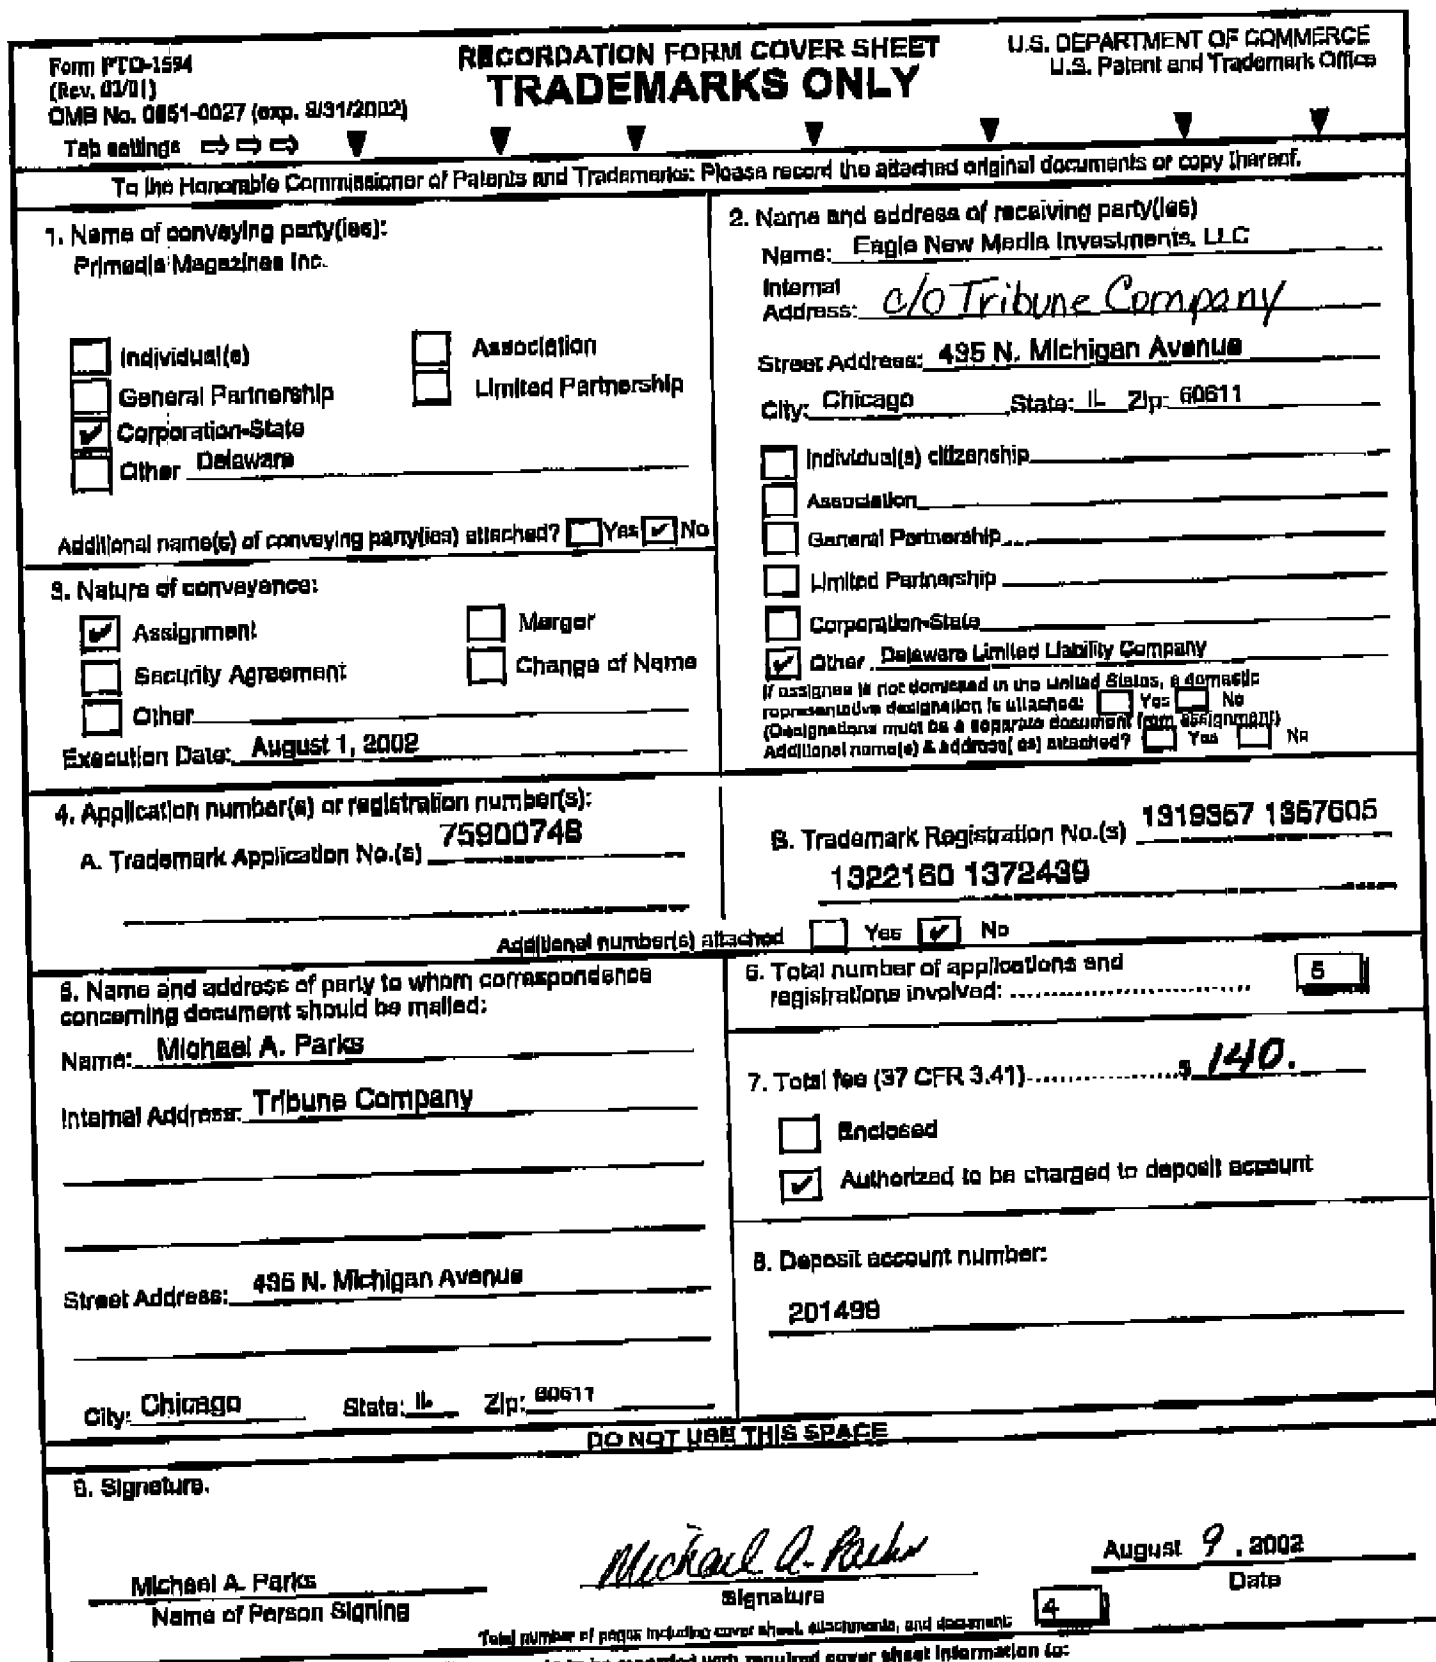 Form PTO-1594
(Rev. 03/01)
OMB No. 0651-0027 (exp. 5/31/2002)
Tab settings
RECORDATION FORM COVER SHEET
TRADEMARKS ONLY
U.S. DEPARTMENT OF COMMERCE
U.S. Patent and Trademark Office
To the Honorable Commissioner of Patents and Trademarks: Please record the attached original documents or copy thereof.
1. Name of conveying party(ies):
Primedia Magazines Inc.
Individual(s)
Association
General Partnership
Limited Partnership
Corporation-State
Other Delaware
Additional name(s) of conveying party(ies) attached? Yes No
2. Name and address of receiving party(ies)
Name: Eagle New Media Investments, LLC
Internal
Address: c/o Tribune Company
Street Address: 435 N. Michigan Avenue
City: Chicago State: IL Zip: 60611
Individual(s) citizenship
Association
General Partnership
Limited Partnership
Corporation-State
Other Delaware Limited Liability Company
If assignee is not domiciled in the United States, a domestic
representative designation is attached: Yes No
(Designations must be a separate document from assignment)
Additional name(s) & address( es) attached? Yes No
3. Nature of conveyance:
Assignment
Merger
Security Agreement
Change of Name
Other
Execution Date: August 1, 2002
4. Application number(s) or registration number(s):
A. Trademark Application No.(s) 75900748
B. Trademark Registration No.(s) 1319357 1367605
1322160 1372439
Additional number(s) attached Yes No
5. Name and address of party to whom correspondence
concerning document should be mailed:
Name: Michael A. Parks
Internal Address: Tribune Company
Street Address: 435 N. Michigan Avenue
City: Chicago State: IL Zip: 60611
6. Total number of applications and
registrations involved: 5
7. Total fee (37 CFR 3.41) $ 140.
Enclosed
Authorized to be charged to deposit account
8. Deposit account number:
201499
DO NOT USE THIS SPACE
9. Signature.
Michael A. Parks
Name of Person Signing
Michael A. Parks
Signature
August 9, 2002
Date
Total number of pages including cover sheet, attachments, and document: 4
to be recorded with required cover sheet information to: